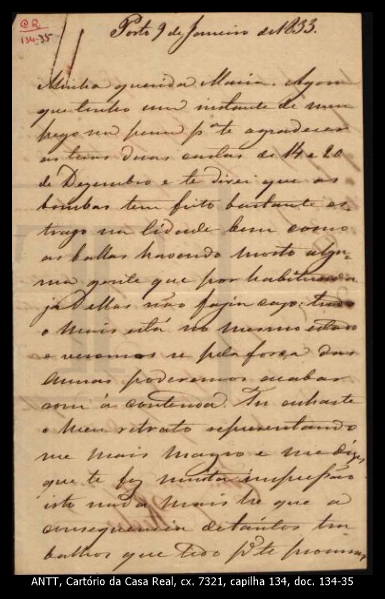 C R
134-35
Porto 9 de Janeiro de 1833.
Minha querida Maria. Agora
que tenho um instante de meu
pego na pena pa te agradecer
as tuas duas cartas de 14 e 20
de Dezembro e te direi que as
bombas tem feito bastante es-
trago na Cidade bem como
as ballas havendo morto algu-
ma gente que por habituada
ja dellas não fazia cazo: tudo
o mais está no mesmo estado
e veremos se pela força das
Armas poderemos acabar
com a contenda. Tu achaste
o Meu retrato representando
me mais magro e me dizes
que te fez muita impressão
isto nada mais he que a
consequencia de tantos tra
balhos que tido pa te procurar
ANTT, Cartório da Casa Real, cx. 7321, capilha 134, doc. 134-35